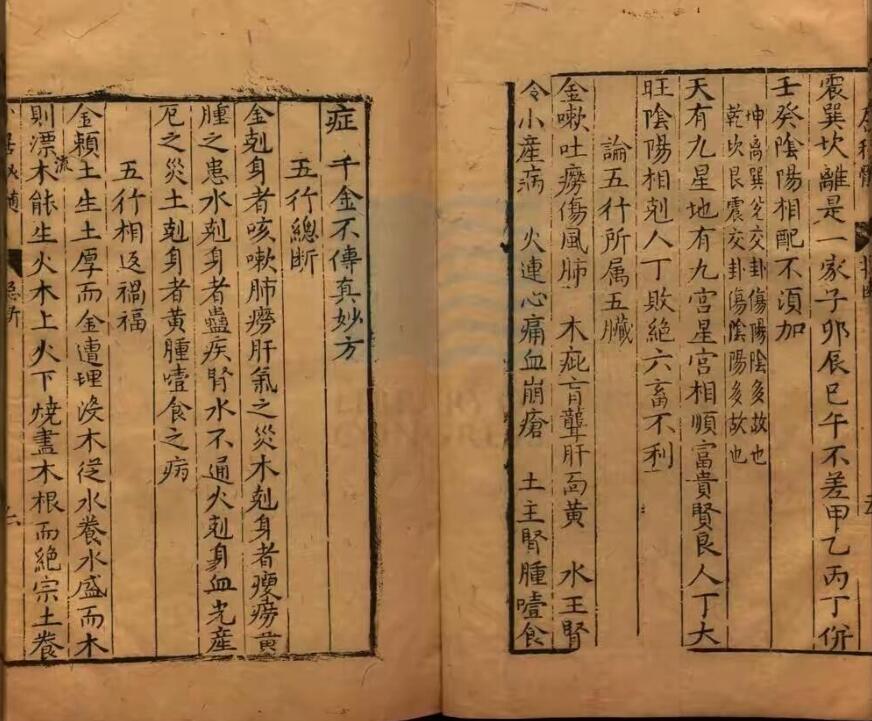 震巽坎離是一家子卯辰巳午不差甲乙丙丁併
壬癸陰陽相配不湏加
坤离巽兌交卦傷陽陰多故也
乾坎艮震交卦傷陰陽多故也
天有九星地有九宮星宮相順富貴賢良人丁大
旺陰陽相剋人丁敗絶六畜不利
論五行所属五臟
金嗽吐癆傷風肺 木疵盲聾肝面黄 水王腎
令小産病 火連心痛血崩瘡 土主腎腫噎食
症 千金不傳真妙方
五行總断
金剋身者咳嗽肺癆肝氣之災木剋身者瘦癆黄
腫之患水剋身者蠱疾腎水不通火剋身血光産
厄之災土剋身者黄腫噎食之病
五行相返禍福
金頼土生土厚而金遭埋沒木從水養水盛而木
則漂流木能生火木上火下燒盡木根而絶宗土養
LIBRARY
CONGRE